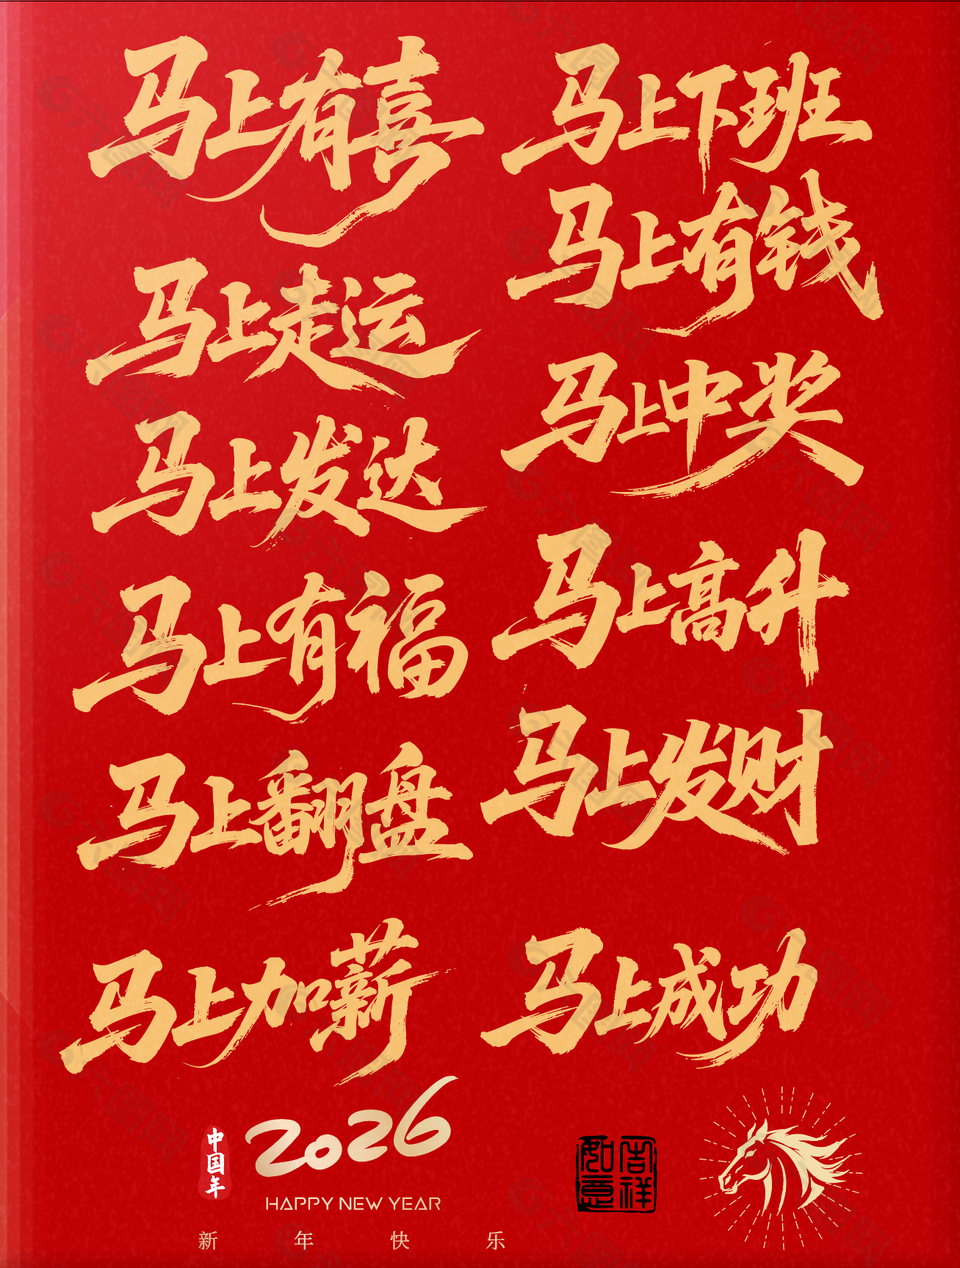 马上有喜
马上下班
马上有钱
马上走运
马上中奖
马上发达
马上高升
马上有福
马上发财
马上翻盘
马上加薪
马上成功
中国年
2026
HAPPY NEW YEAR
吉祥如意
新年快乐